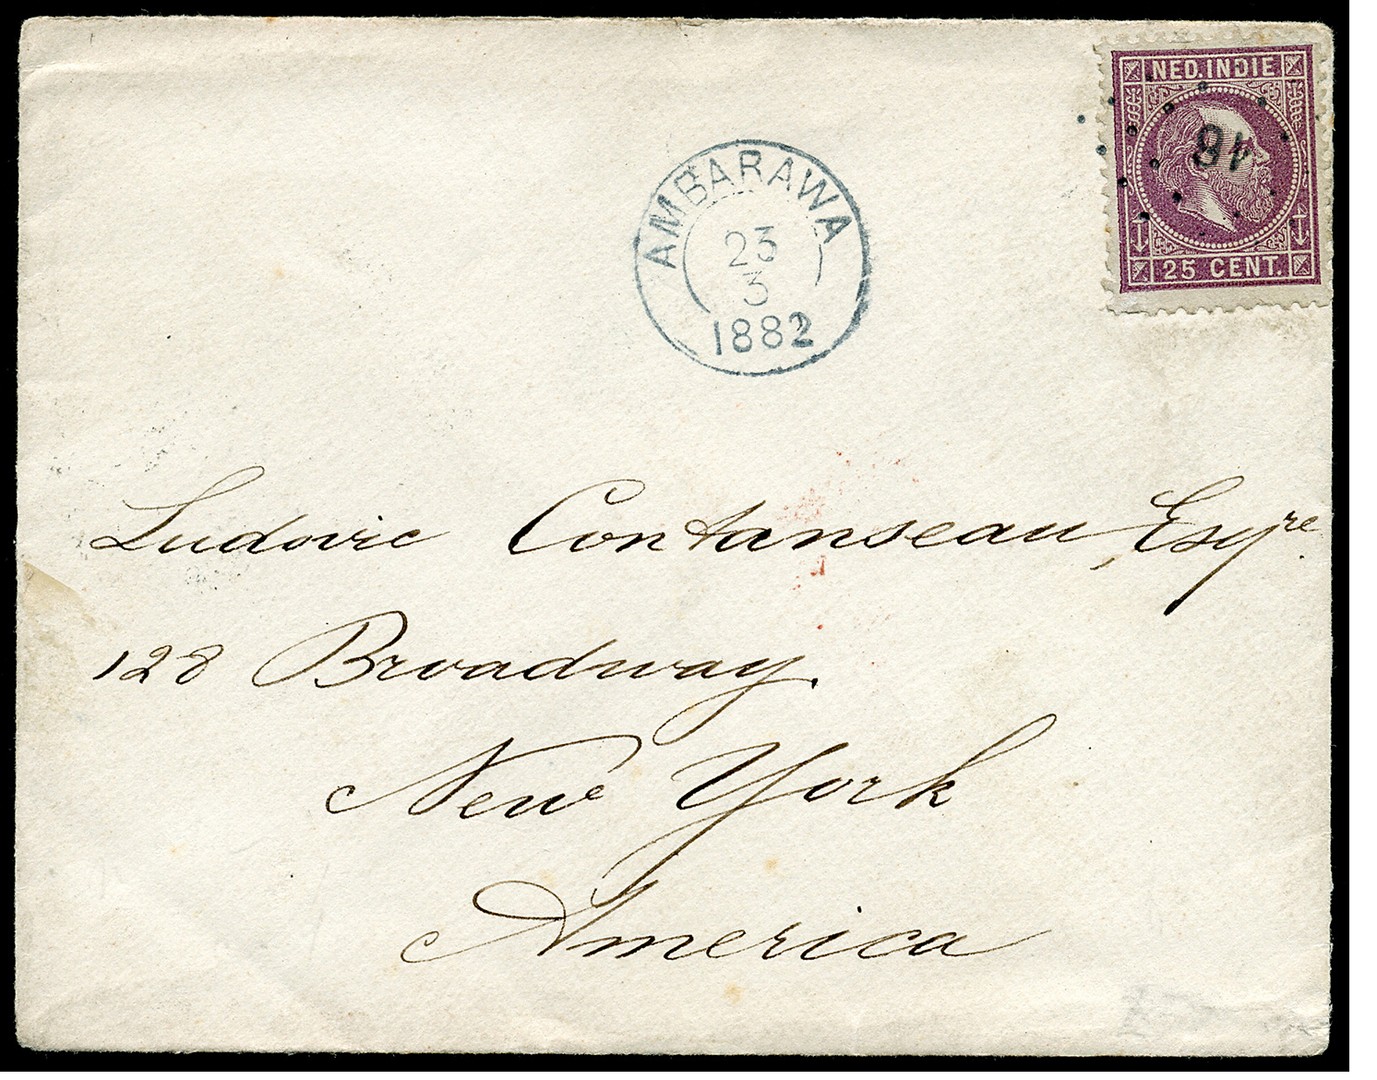 NED. INDIE
48
25 CENT.
AMBARAWA
23
3
1882
Ludovic Contanseau, Esqre.
128 Broadway.
New York
America